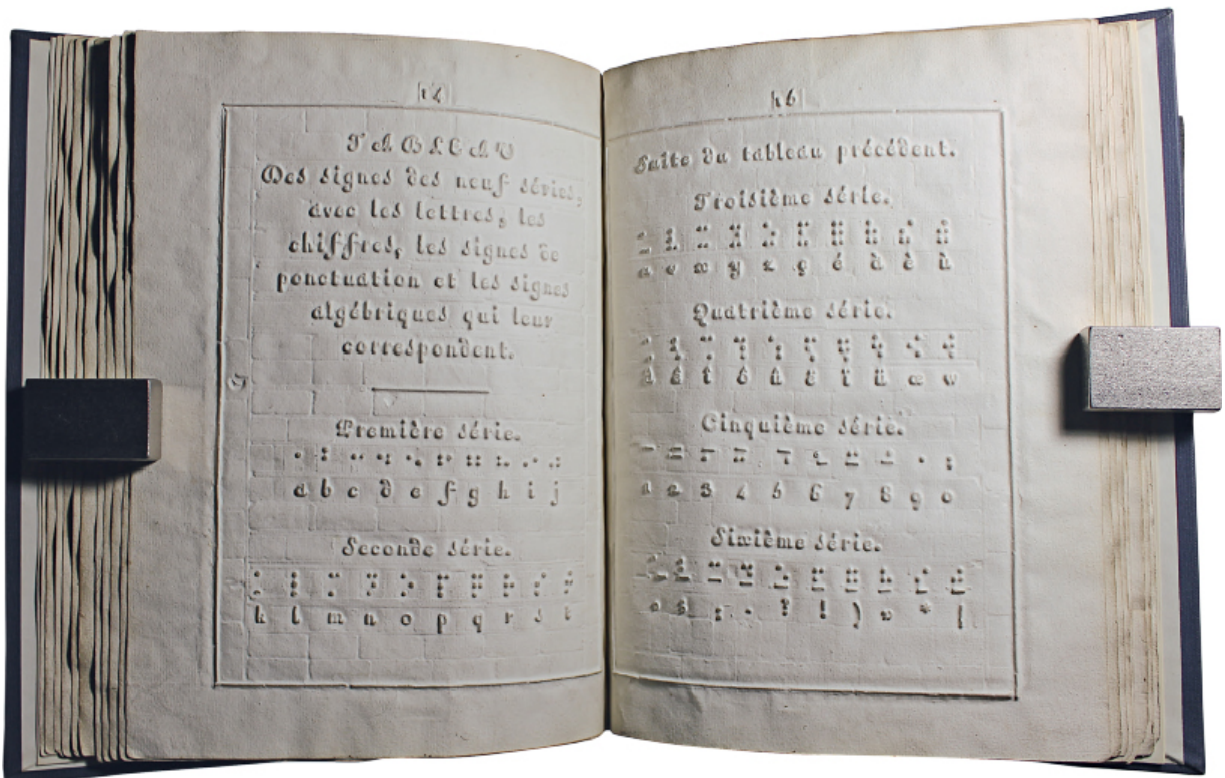 14
TABLEAU
Des signes des neuf séries,
avec les lettres, les
chiffres, les signes de
ponctuation et les signes
algébriques qui leur
correspondent.
Première série.
a b c d e f g h i j
Seconde série.
k l m n o p q r s t
15
Suite du tableau précédent.
Troisième série.
u v x y z ç é à è ù
Quatrième série.
â ê î ô û ë ï ü œ w
Cinquième série.
1 2 3 4 5 6 7 8 9 0
Sixième série.
? ! ) *